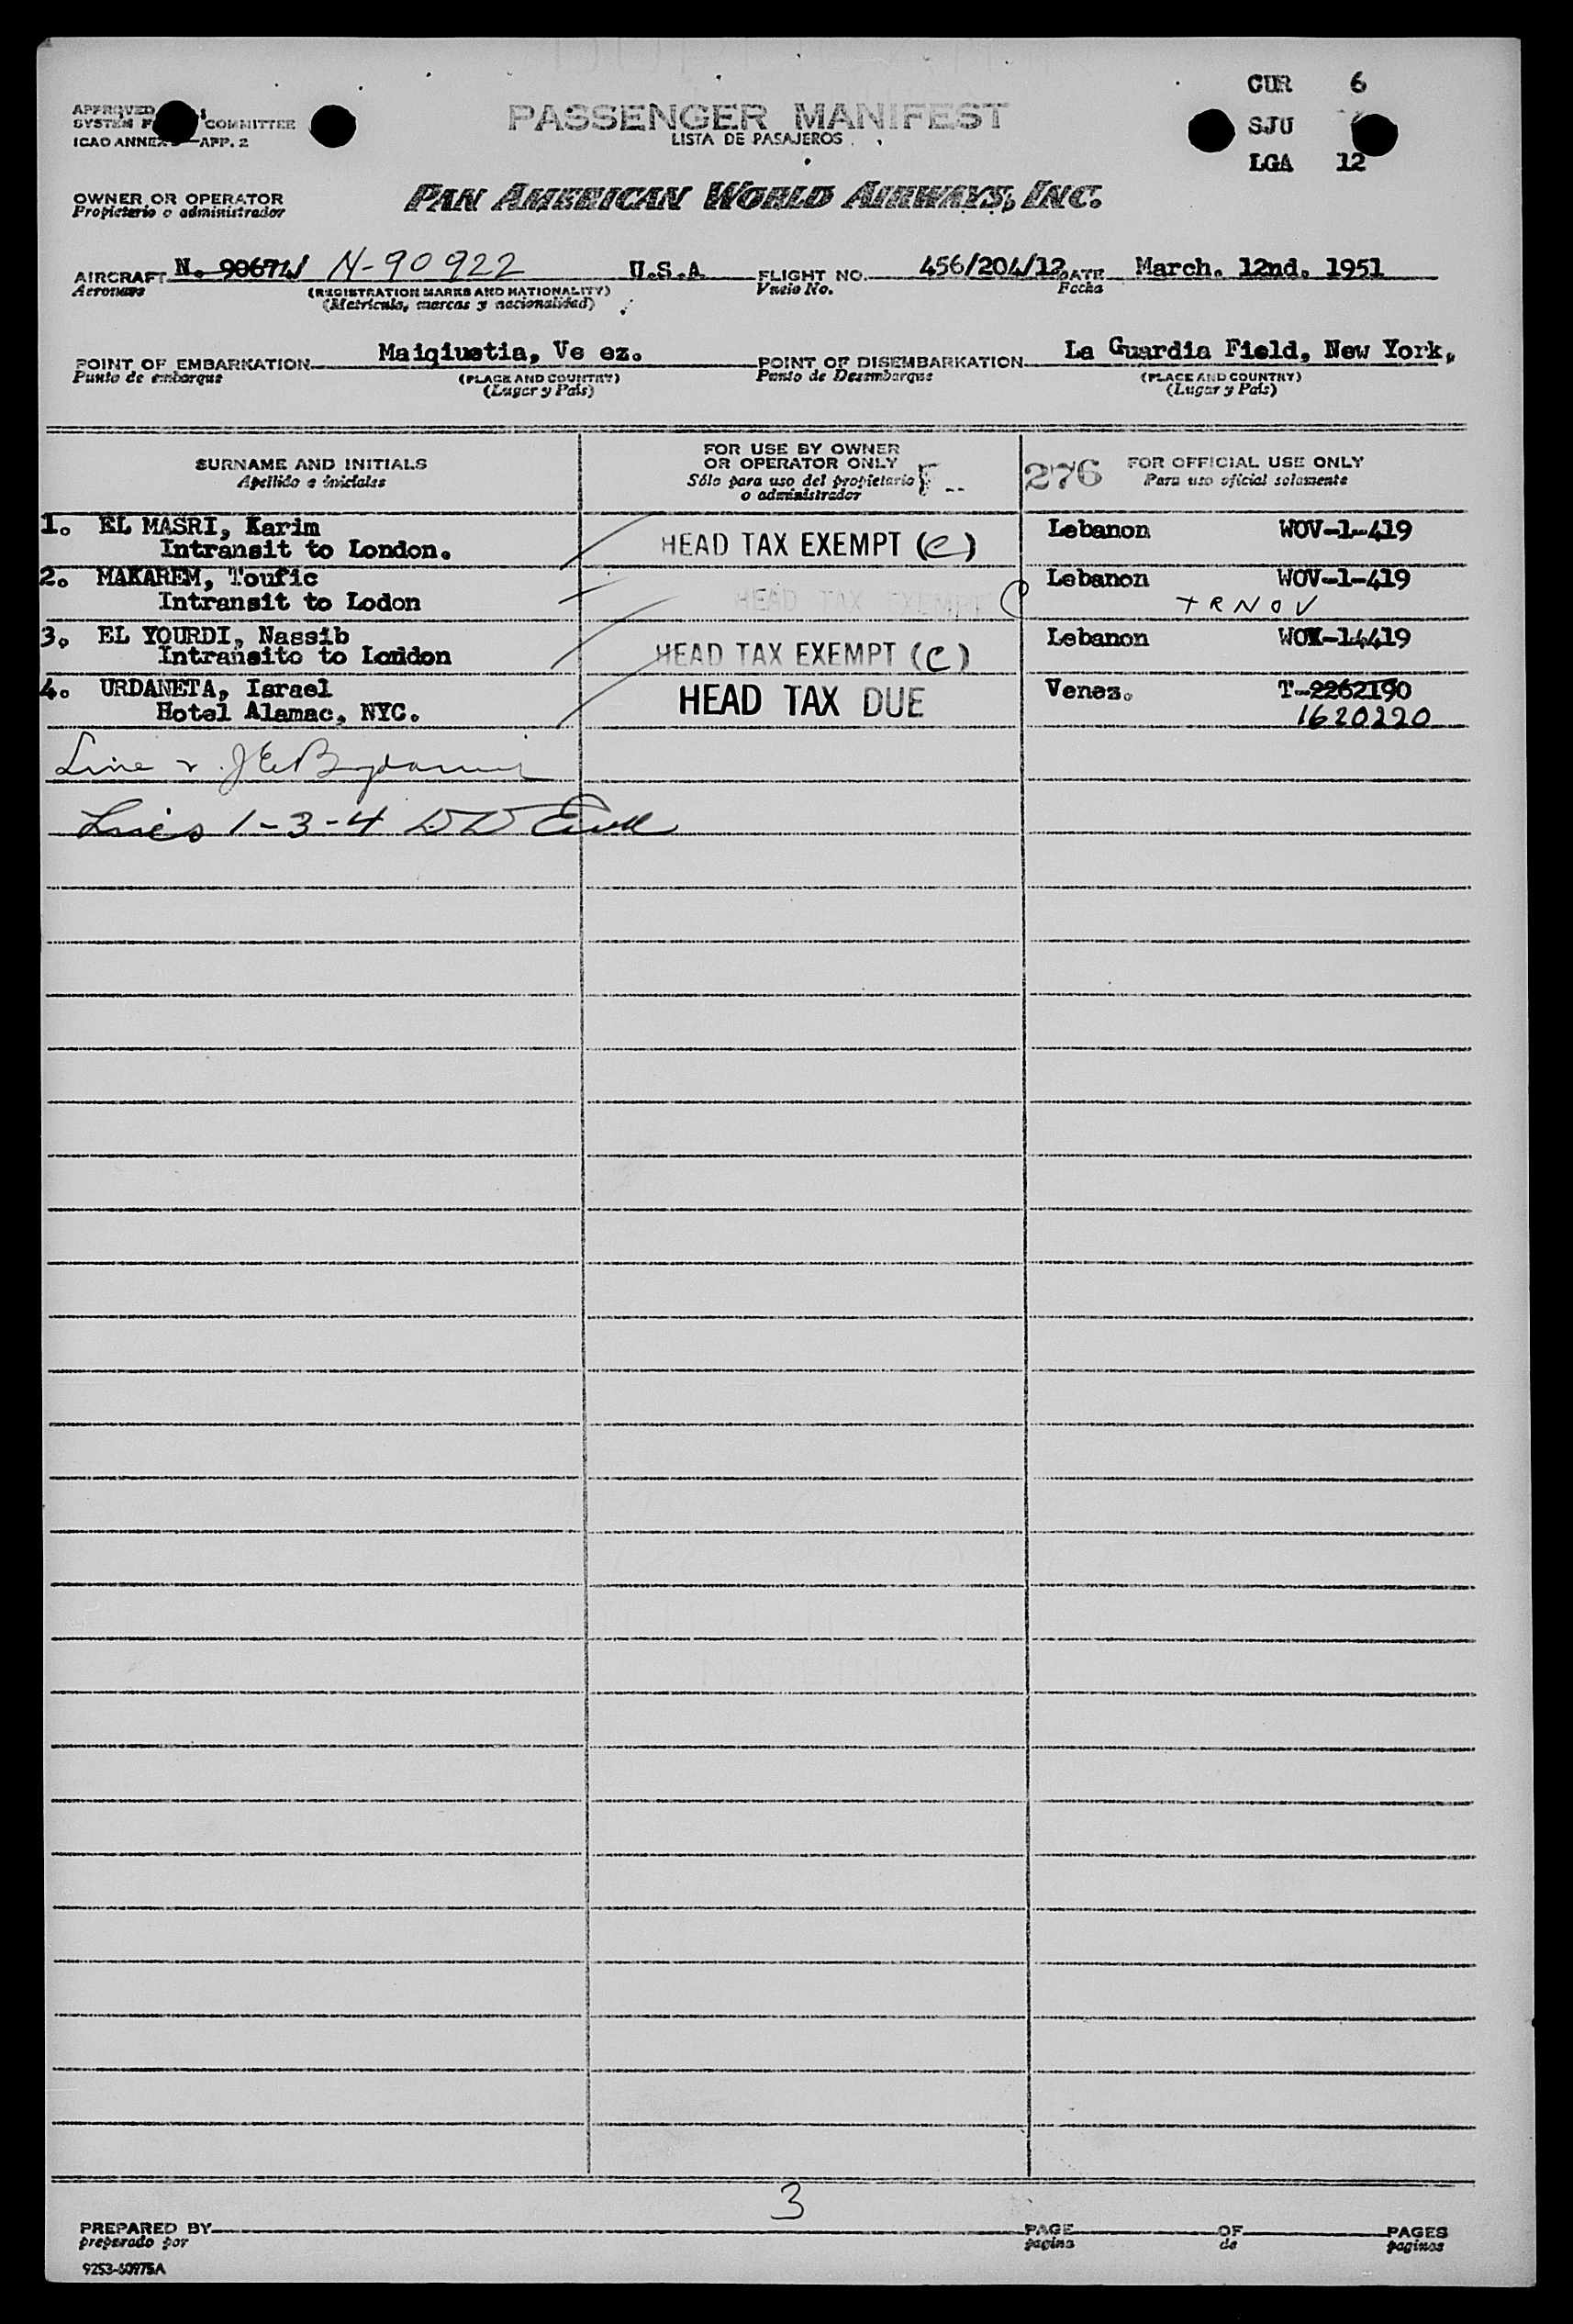 CUR 6
APPROVED
SYSTEM F COMMITTEE
ICAO ANNEX APP. 2
PASSENGER MANIFEST
LISTA DE PASAJEROS
SJU
LGA 12
OWNER OR OPERATOR
Propietario o administrador
PAN AMERICAN WORLD AIRWAYS, INC.
AIRCRAFT N. 90674 N-90922 U.S.A FLIGHT NO. 456/204/12 DATE March. 12nd. 1951
Aeronave (REGISTRATION MARKS AND NATIONALITY) Vuelo No. Fecha
(Metrícula, marcas y nacionalidad)
POINT OF EMBARKATION Maiqiuetia, Ve ez. POINT OF DISEMBARKATION La Guardia Field, New York,
Punto de embarque (PLACE AND COUNTRY) Punto de Desembarque (PLACE AND COUNTRY)
(Lugar y País) (Lugar y País)
SURNAME AND INITIALS
Apellido e iniciales
FOR USE BY OWNER
OR OPERATOR ONLY
Sólo para uso del propietario
o administrador
276 FOR OFFICIAL USE ONLY
Para uso oficial solamente
1. EL MASRI, Karim Lebanon WOV-1-419
Intransit to London. HEAD TAX EXEMPT (C)
2. MAKAREM, Toufic Lebanon WOV-1-419
Intransit to Lodon HEAD TAX EXEMPT C TRNOV
3. EL YOURDI, Nassib Lebanon
Intransito to London HEAD TAX EXEMPT (C)
4. URDANETA, Israel HEAD TAX DUE Venez. T-2262190
Hotel Alamac, NYC. 1620220
Line
Lines 1-3-4
3
PREPARED BY PAGE OF PAGES
preparado por pagina de paginas
9253-60975A